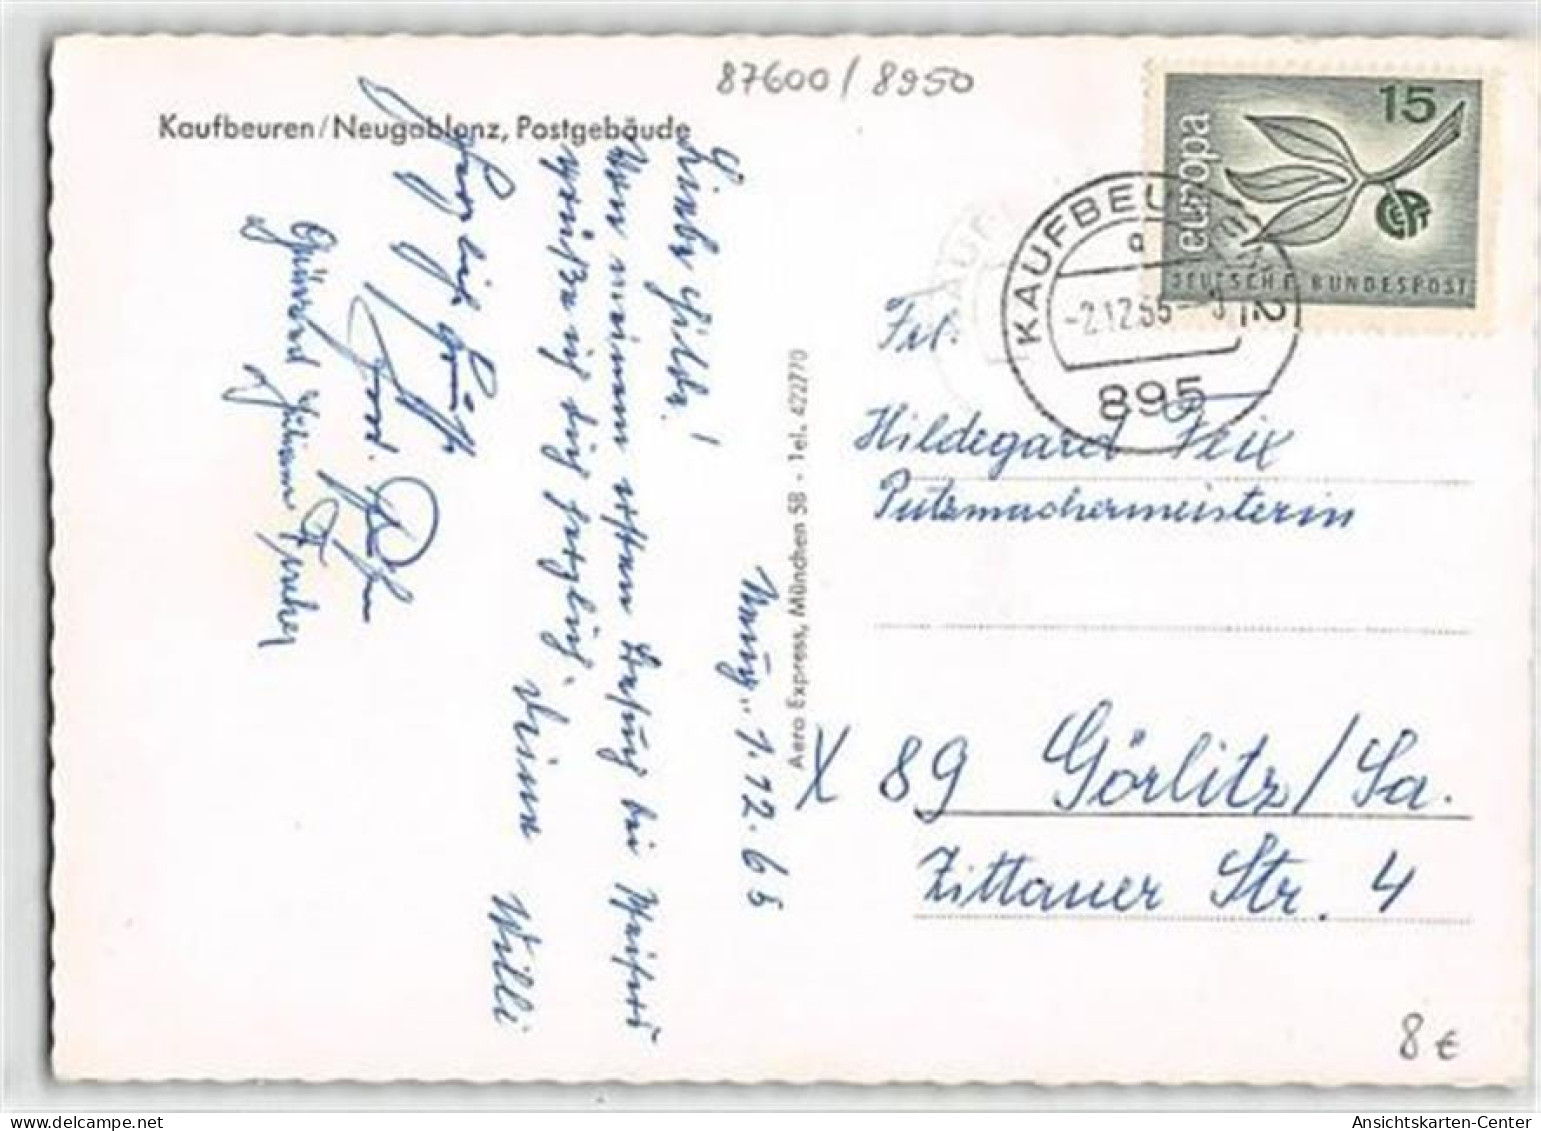 87600 / 8950
Kaufbeuren/Neugablonz, Postgebäude
Neug., 1.12.65
Liebe Hilde!
Von meinem ersten Besuch bei
grüße ich dich herzlich
Deine Willi
Herzliche Grüße
Gerhard
Aero Express, München 58 · Tel. 422770
15
europa
CEPT
DEUTSCHE BUNDESPOST
KAUFBEU
a
-2.12.65-
895
Frl.
Hildegard Feix
Putzmachermeisterin
X 89 Görlitz/Sa.
Zittauer Str. 4
8 €
Ansichtskarten-Center
delcampe.net